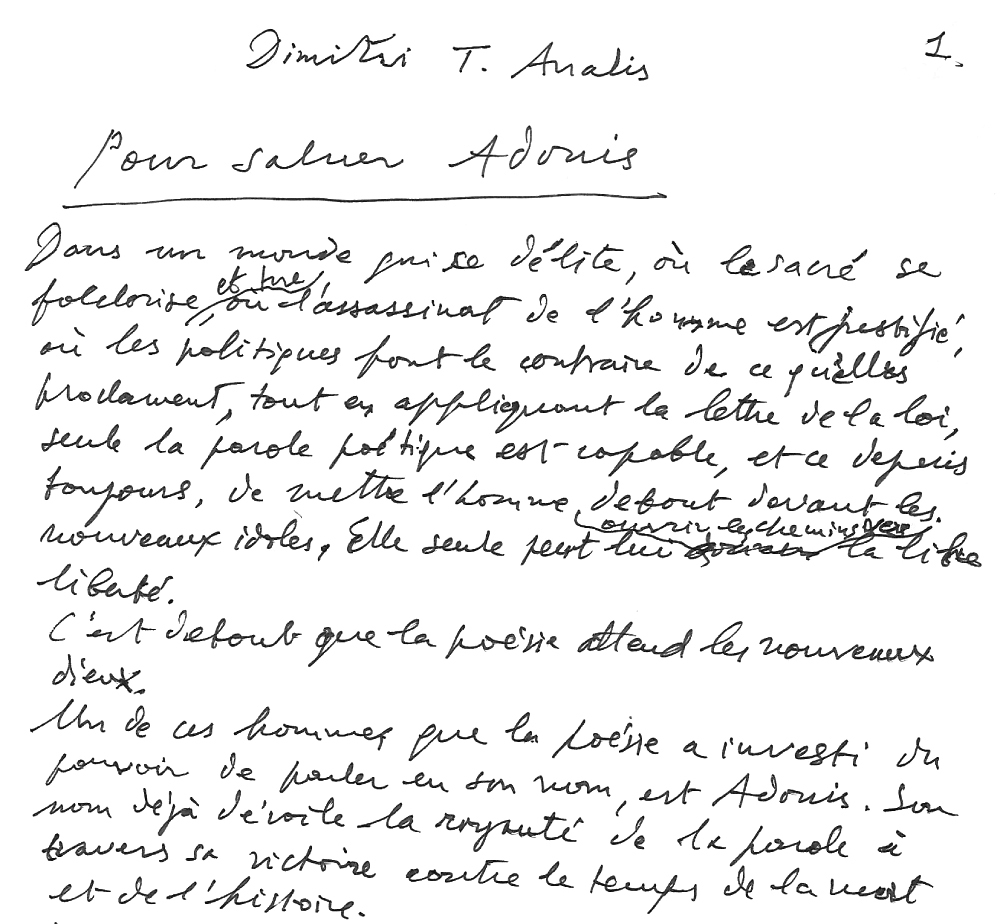 Dimitri T. Analis
1.
Pour saluer Adonis
Dans un monde qui se délite, où le sacré se
et tue,
folclorise, où l'assassinat de l'homme est justifié,
où les politiques font le contraire de ce qu'elles
proclament, tout en appliquant la lettre de la loi,
seule la parole poétique est capable, et ce depuis
toujours, de mettre l'homme debout devant les
ouvrir les chemins vers
nouveaux idoles. Elle seule peut lui la libre
liberté.
C'est debout que la poésie attend les nouveaux
dieux.
Un de ces hommes que la poésie a investi du
pouvoir de parler en son nom, est Adonis. Son
nom déjà dévoile la royauté de la parole à
travers sa victoire contre le temps de la mort
et de l'histoire.